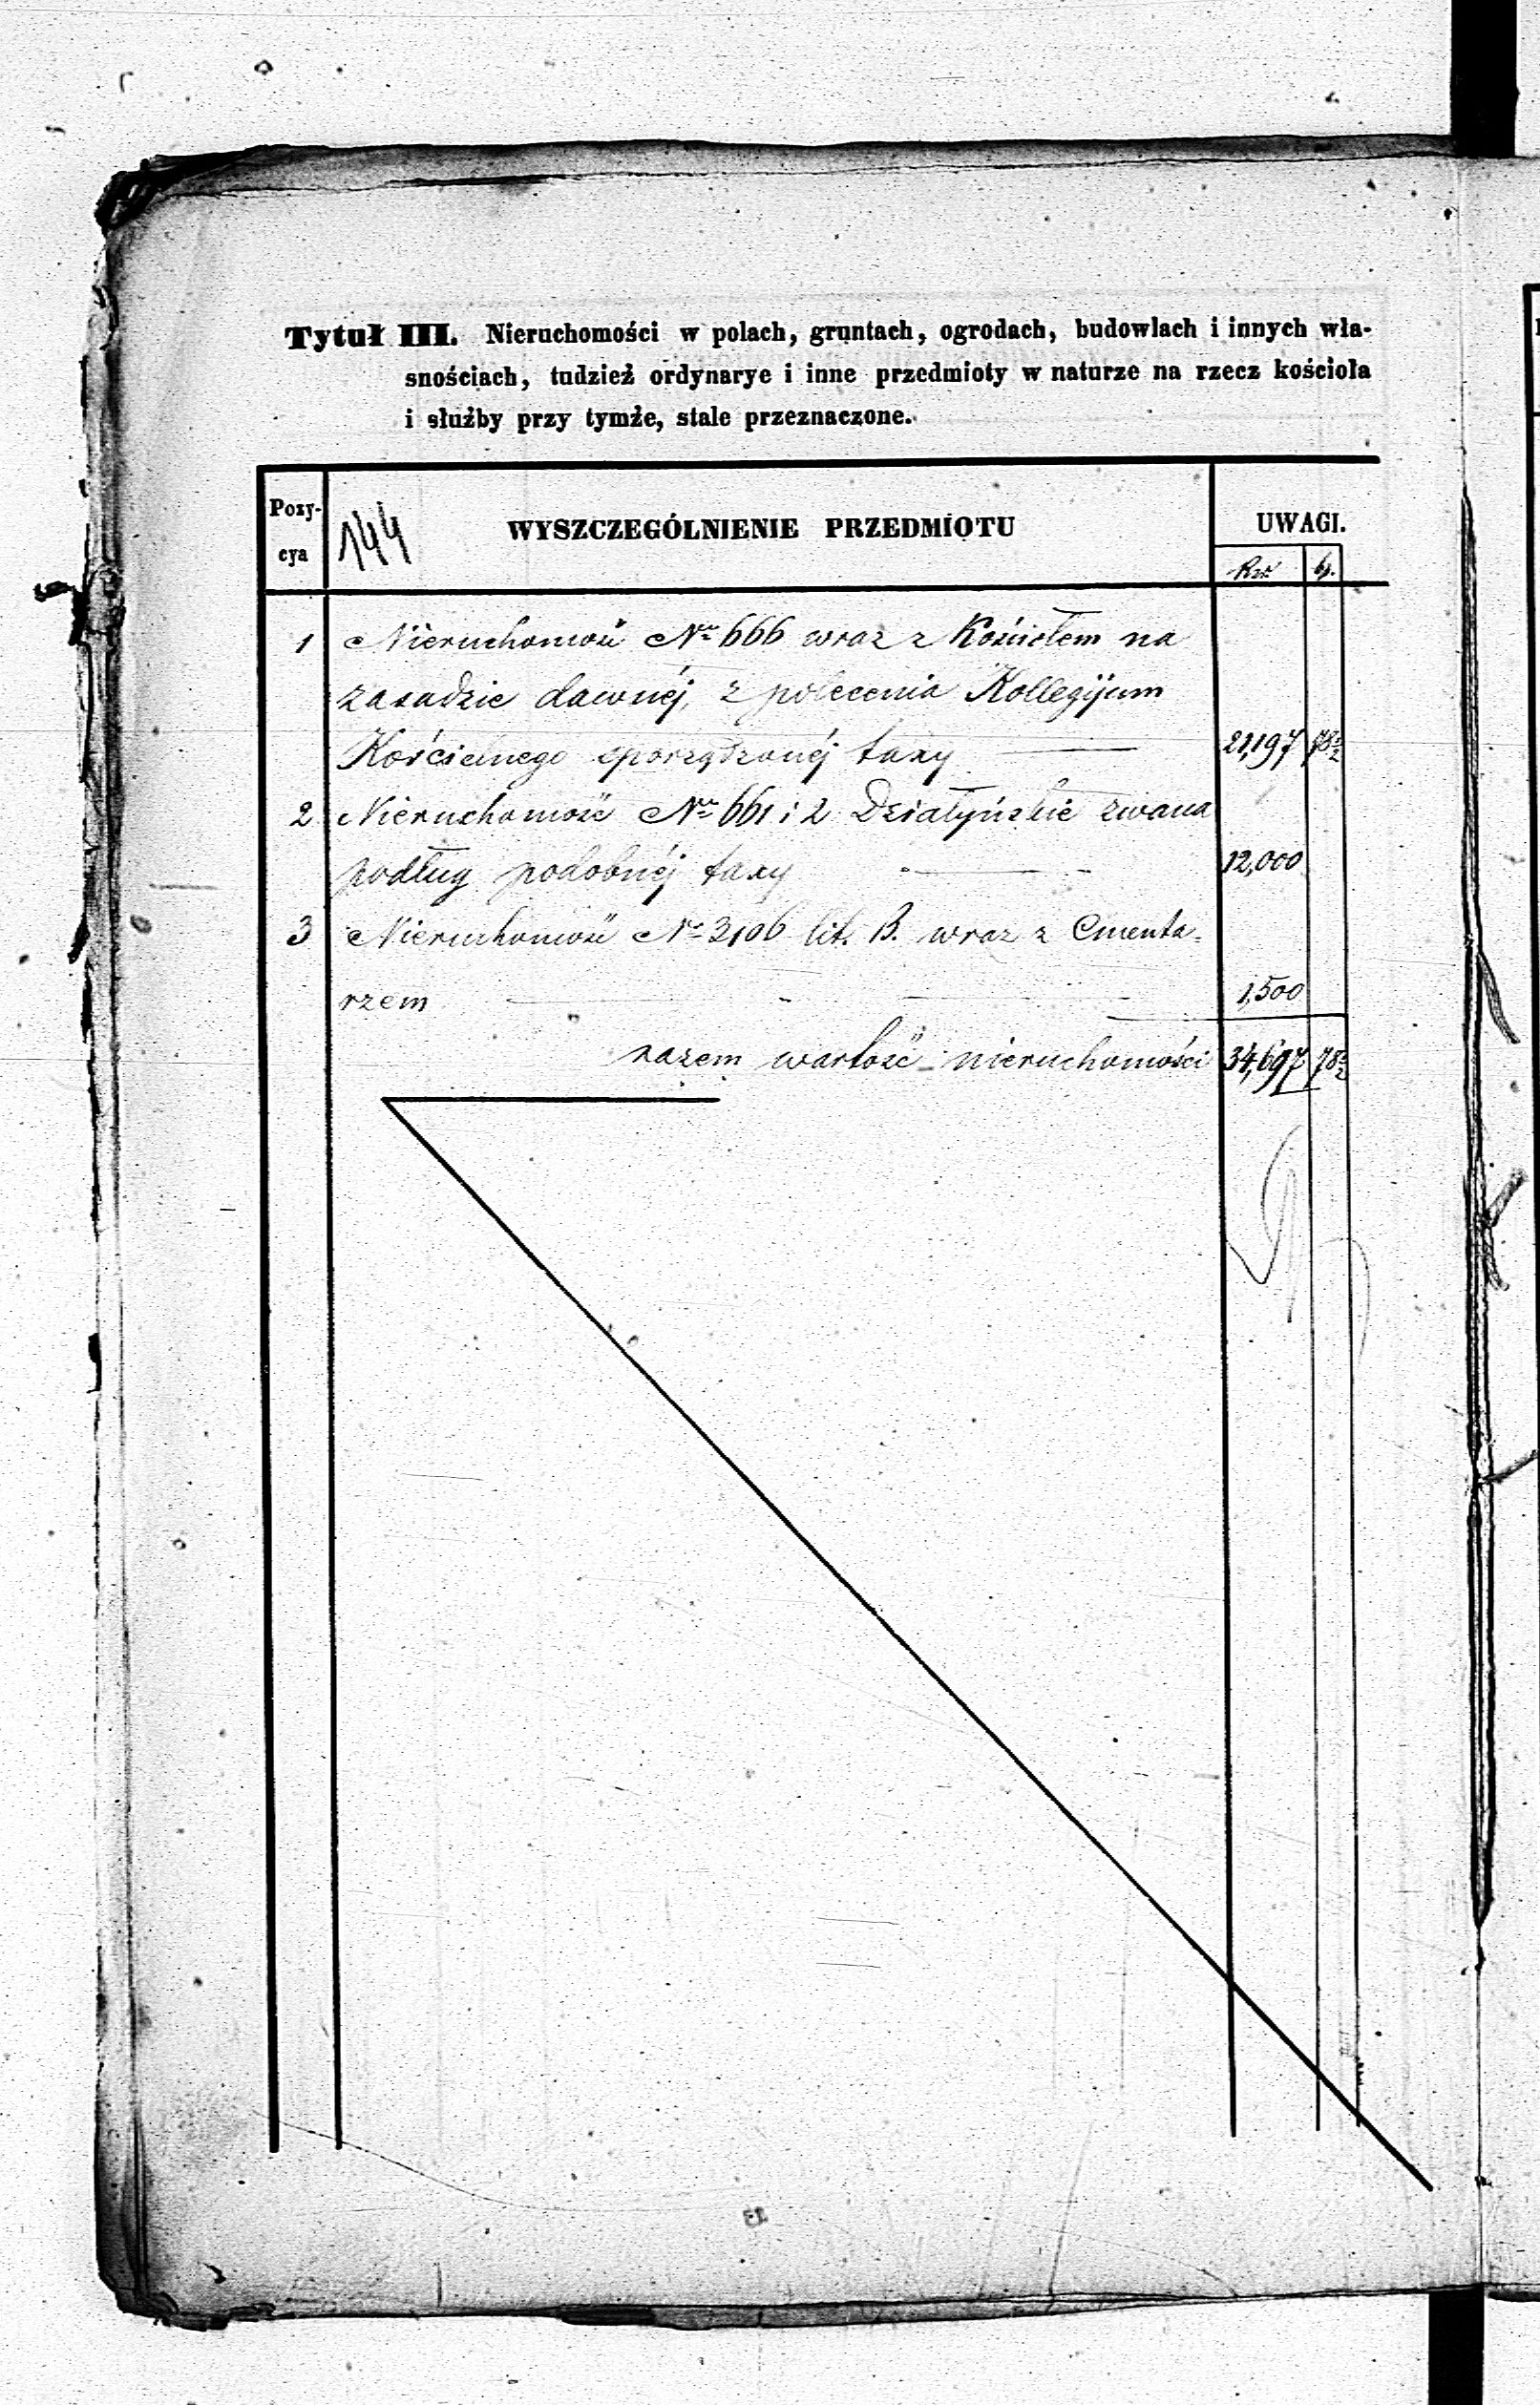 Tytuł III. Nieruchomości w polach, gruntach, ogrodach, budowlach i innych wła-
snościach, tudzież ordynarye i inne przedmioty w naturze na rzecz kościoła
i służby przy tymże, stale przeznaczone.
Pozy-
cya
144
WYSZCZEGÓLNIENIE PRZEDMIOTU
UWAGI.
Rsr. k.
1 Nieruchomość Nr 666 wraz z Kościołem na
zasadzie dawnéj, z polecenia Kollegijum
Kościelnego sporządzonéj taxy 21,197 78½
2 Nieruchomość Nr 661 i 2 Działyńskie zwana
podług podobnéj taxy 12,000
3 Nieruchomość Nr 3106 lit. B. wraz z Cmenta-
rzem 1,500
razem wartość nieruchomości 34,697 78½